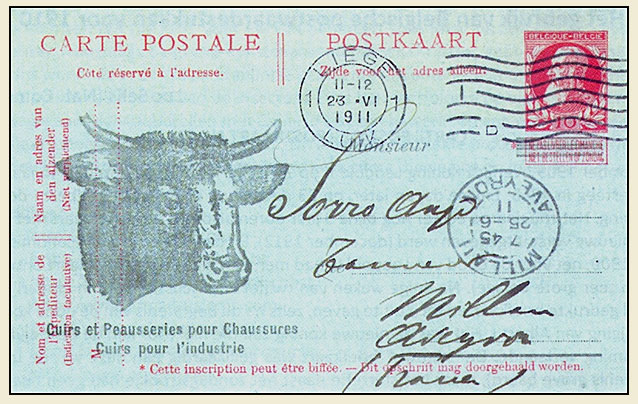 CARTE POSTALE
POSTKAART
BELGIQUE-BELGIË
Côté réservé à l'adresse.
Zijde voor het adres alleen.
LIEGE
11-12
1 23 · VI 1
1911
LUIK
D
10
Monsieur
Naam en adres van
den afzender
(Niet verplichtend)
AVEYRON
7 45
25-6
11
MILLAU
Tanneur
Millau
Aveyron
(France)
Nom et adresse de
l'expéditeur
(Indication facultative)
M
Cuirs et Peausseries pour Chaussures
Cuirs pour l'industrie
* Cette inscription peut être biffée. — Dit opschrift mag doorgehaald worden.